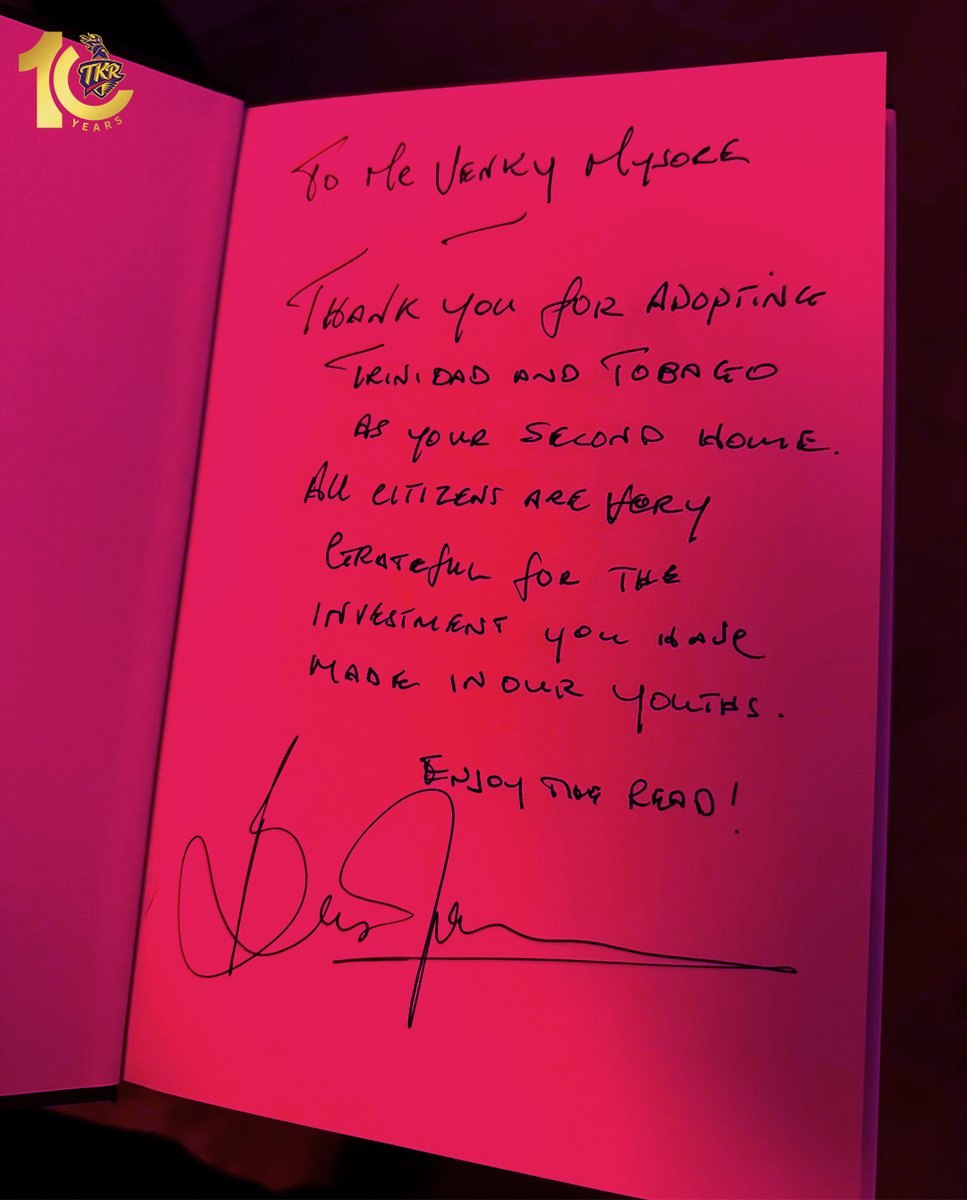 10 TKR
YEARS
To Mr Venky Mysore
Thank you for adopting
Trinidad and Tobago
as your second home.
All citizens are very
grateful for the
investment you have
made in our youths.
Enjoy the read!